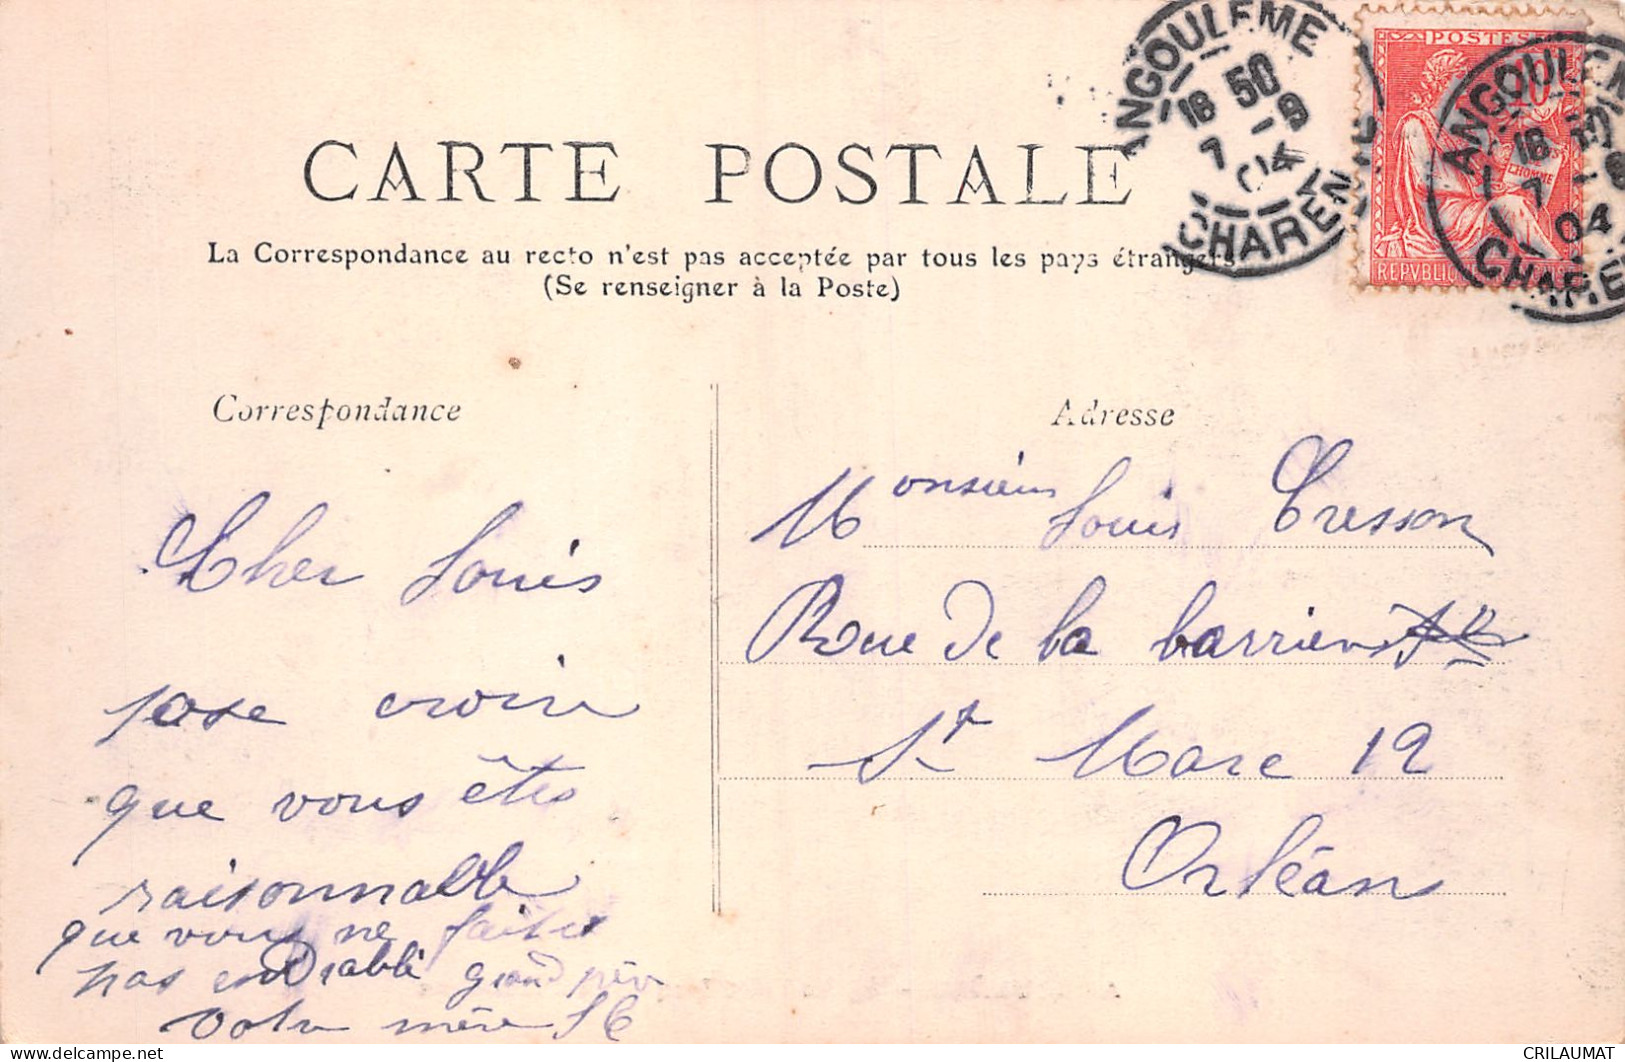 CARTE POSTALE
La Correspondance au recto n'est pas acceptée par tous les pays étrangers
(Se renseigner à la Poste)
ANGOULEME
18 50
7 -9
04
CHARENTE
POSTES
10
L'HOMME
ANGOULEM
18
7
04
CHARE
Correspondance
Cher Louis
jose croire
que vous êtes
raisonnable
que vous ne faites
pas endiablé grand père
votre mère
Adresse
Monsieur Louis Cresson
Rue de la barrière
St Marc 12
Orléans
www.delcampe.net
CRILAUMAT